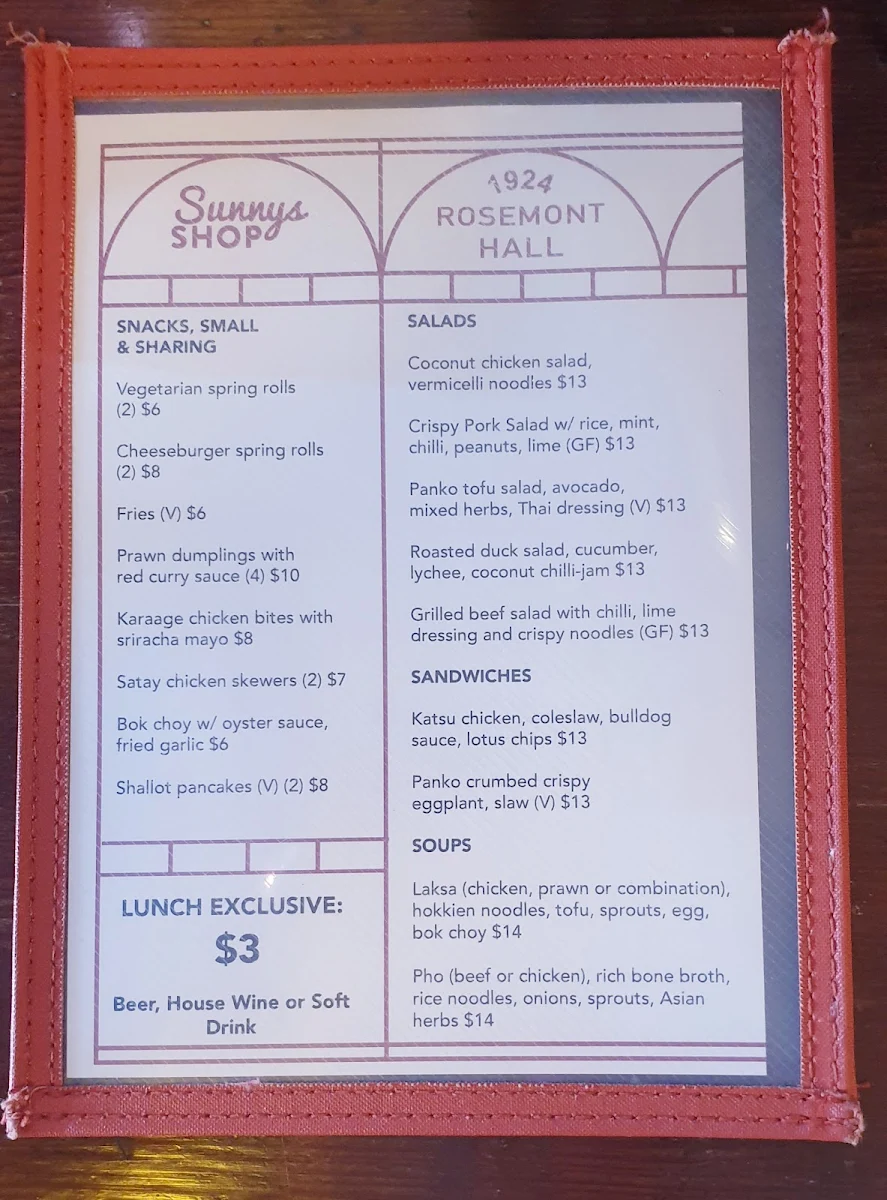 Sunnys
SHOP
SNACKS, SMALL
& SHARING
Vegetarian spring rolls
(2) $6
Cheeseburger spring rolls
(2) $8
Fries (V) $6
Prawn dumplings with
red curry sauce (4) $10
Karaage chicken bites with
sriracha mayo $8
Satay chicken skewers (2) $7
Bok choy w/ oyster sauce,
fried garlic $6
Shallot pancakes (V) (2) $8
LUNCH EXCLUSIVE:
$3
Beer, House Wine or Soft
Drink
1924
ROSEMONT
HALL
SALADS
Coconut chicken salad,
vermicelli noodles $13
Crispy Pork Salad w/ rice, mint,
chilli, peanuts, lime (GF) $13
Panko tofu salad, avocado,
mixed herbs, Thai dressing (V) $13
Roasted duck salad, cucumber,
lychee, coconut chilli-jam $13
Grilled beef salad with chilli, lime
dressing and crispy noodles (GF) $13
SANDWICHES
Katsu chicken, coleslaw, bulldog
sauce, lotus chips $13
Panko crumbed crispy
eggplant, slaw (V) $13
SOUPS
Laksa (chicken, prawn or combination),
hokkien noodles, tofu, sprouts, egg,
bok choy $14
Pho (beef or chicken), rich bone broth,
rice noodles, onions, sprouts, Asian
herbs $14